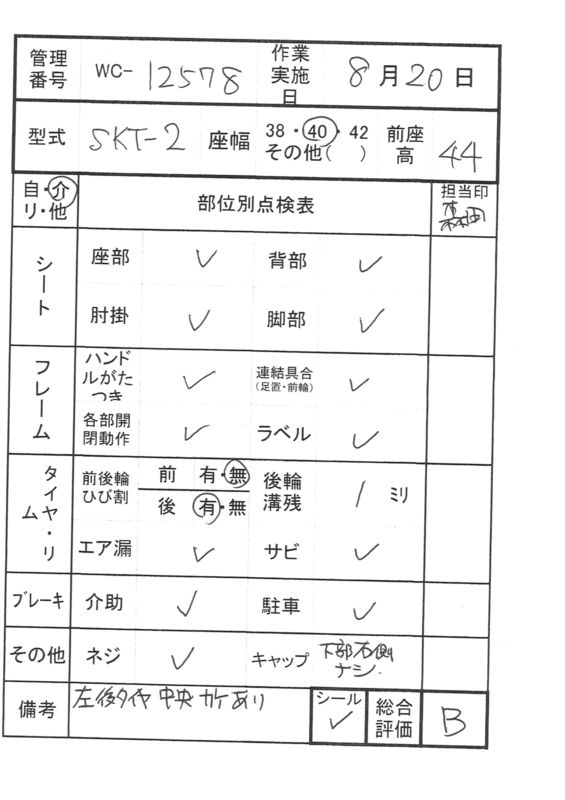 管理番号 WC- 12578 作業実施日 8月20日
型式 SKT-2 座幅 38・40・42 その他( ) 前座高 44
自・介 リ・他 部位別点検表 担当印 森田
シート 座部 ✓ 背部 ✓
肘掛 ✓ 脚部 ✓
フレーム ハンドルがたつき ✓ 連結具合(足置・前輪) ✓
各部開閉動作 ✓ ラベル ✓
タイヤ・リム 前後輪ひび割 前 有・無 後 有・無 後輪溝残 1 ミリ
エア漏 ✓ サビ ✓
ブレーキ 介助 ✓ 駐車 ✓
その他 ネジ ✓ キャップ 下部右側ナシ.
備考 左後タイヤ 中央 カケあり シール ✓ 総合評価 B